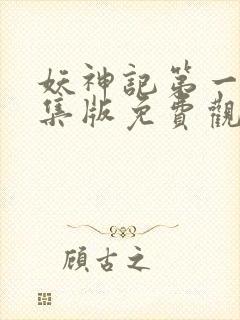 妖神記第一
集版免費觀
顧古之